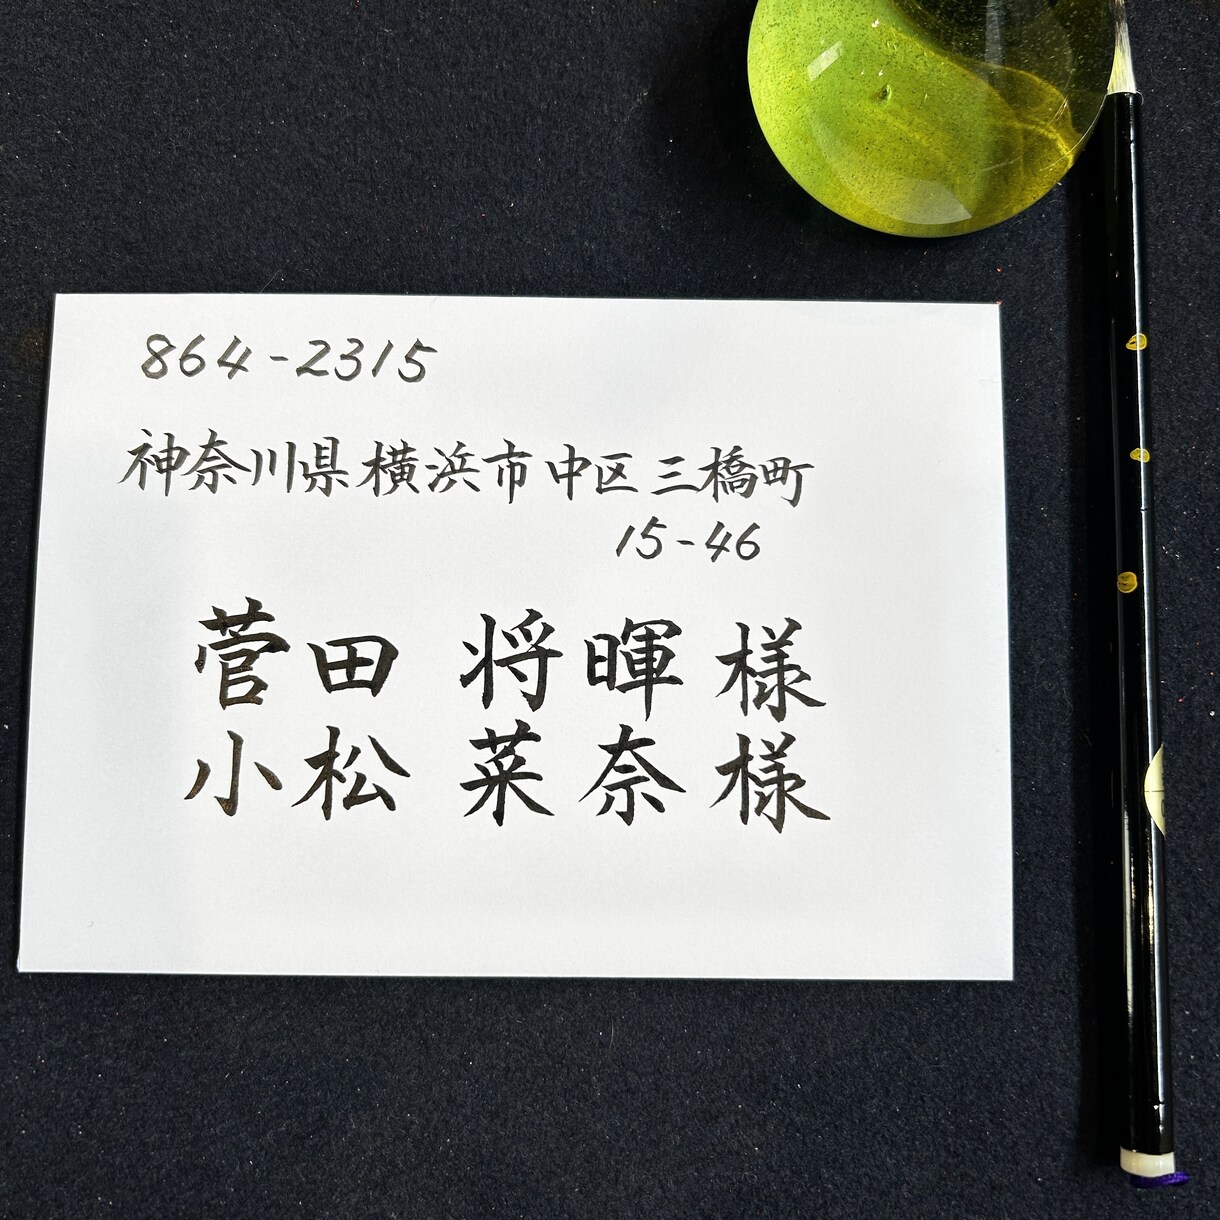 864-2315
神奈川県横浜市中区三橋町
15-46
菅田 将暉 様
小松 菜奈 様